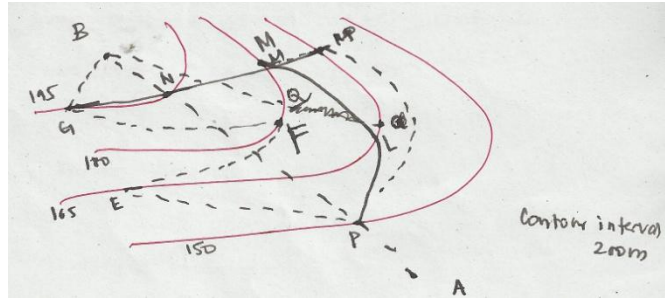 B
M
M
MP
195
N
G
Q
F
L
180
165
E
P
150
A
Contour interval
200m